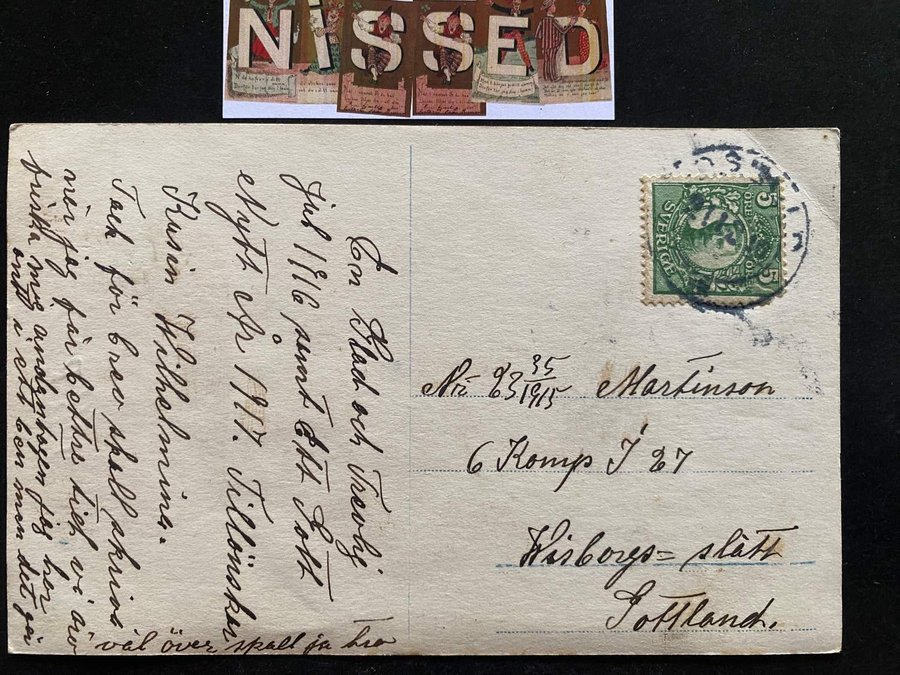 NISSED
En Glad och Trevlj
Jul 1916 samt Ett Gott
Nytt År 1917. Tillönskar
Kusin Wilhelmina.
Tack för brev skall skriva
när jag får bettre tid vi är
friska men jeg har
ontt i ett ben men det går
väl över skall ja tro
SVERIGE
5 5
No 23 35/1915 Martinson
6 Komp I 27
Wisborgs= slätt
Gottland.